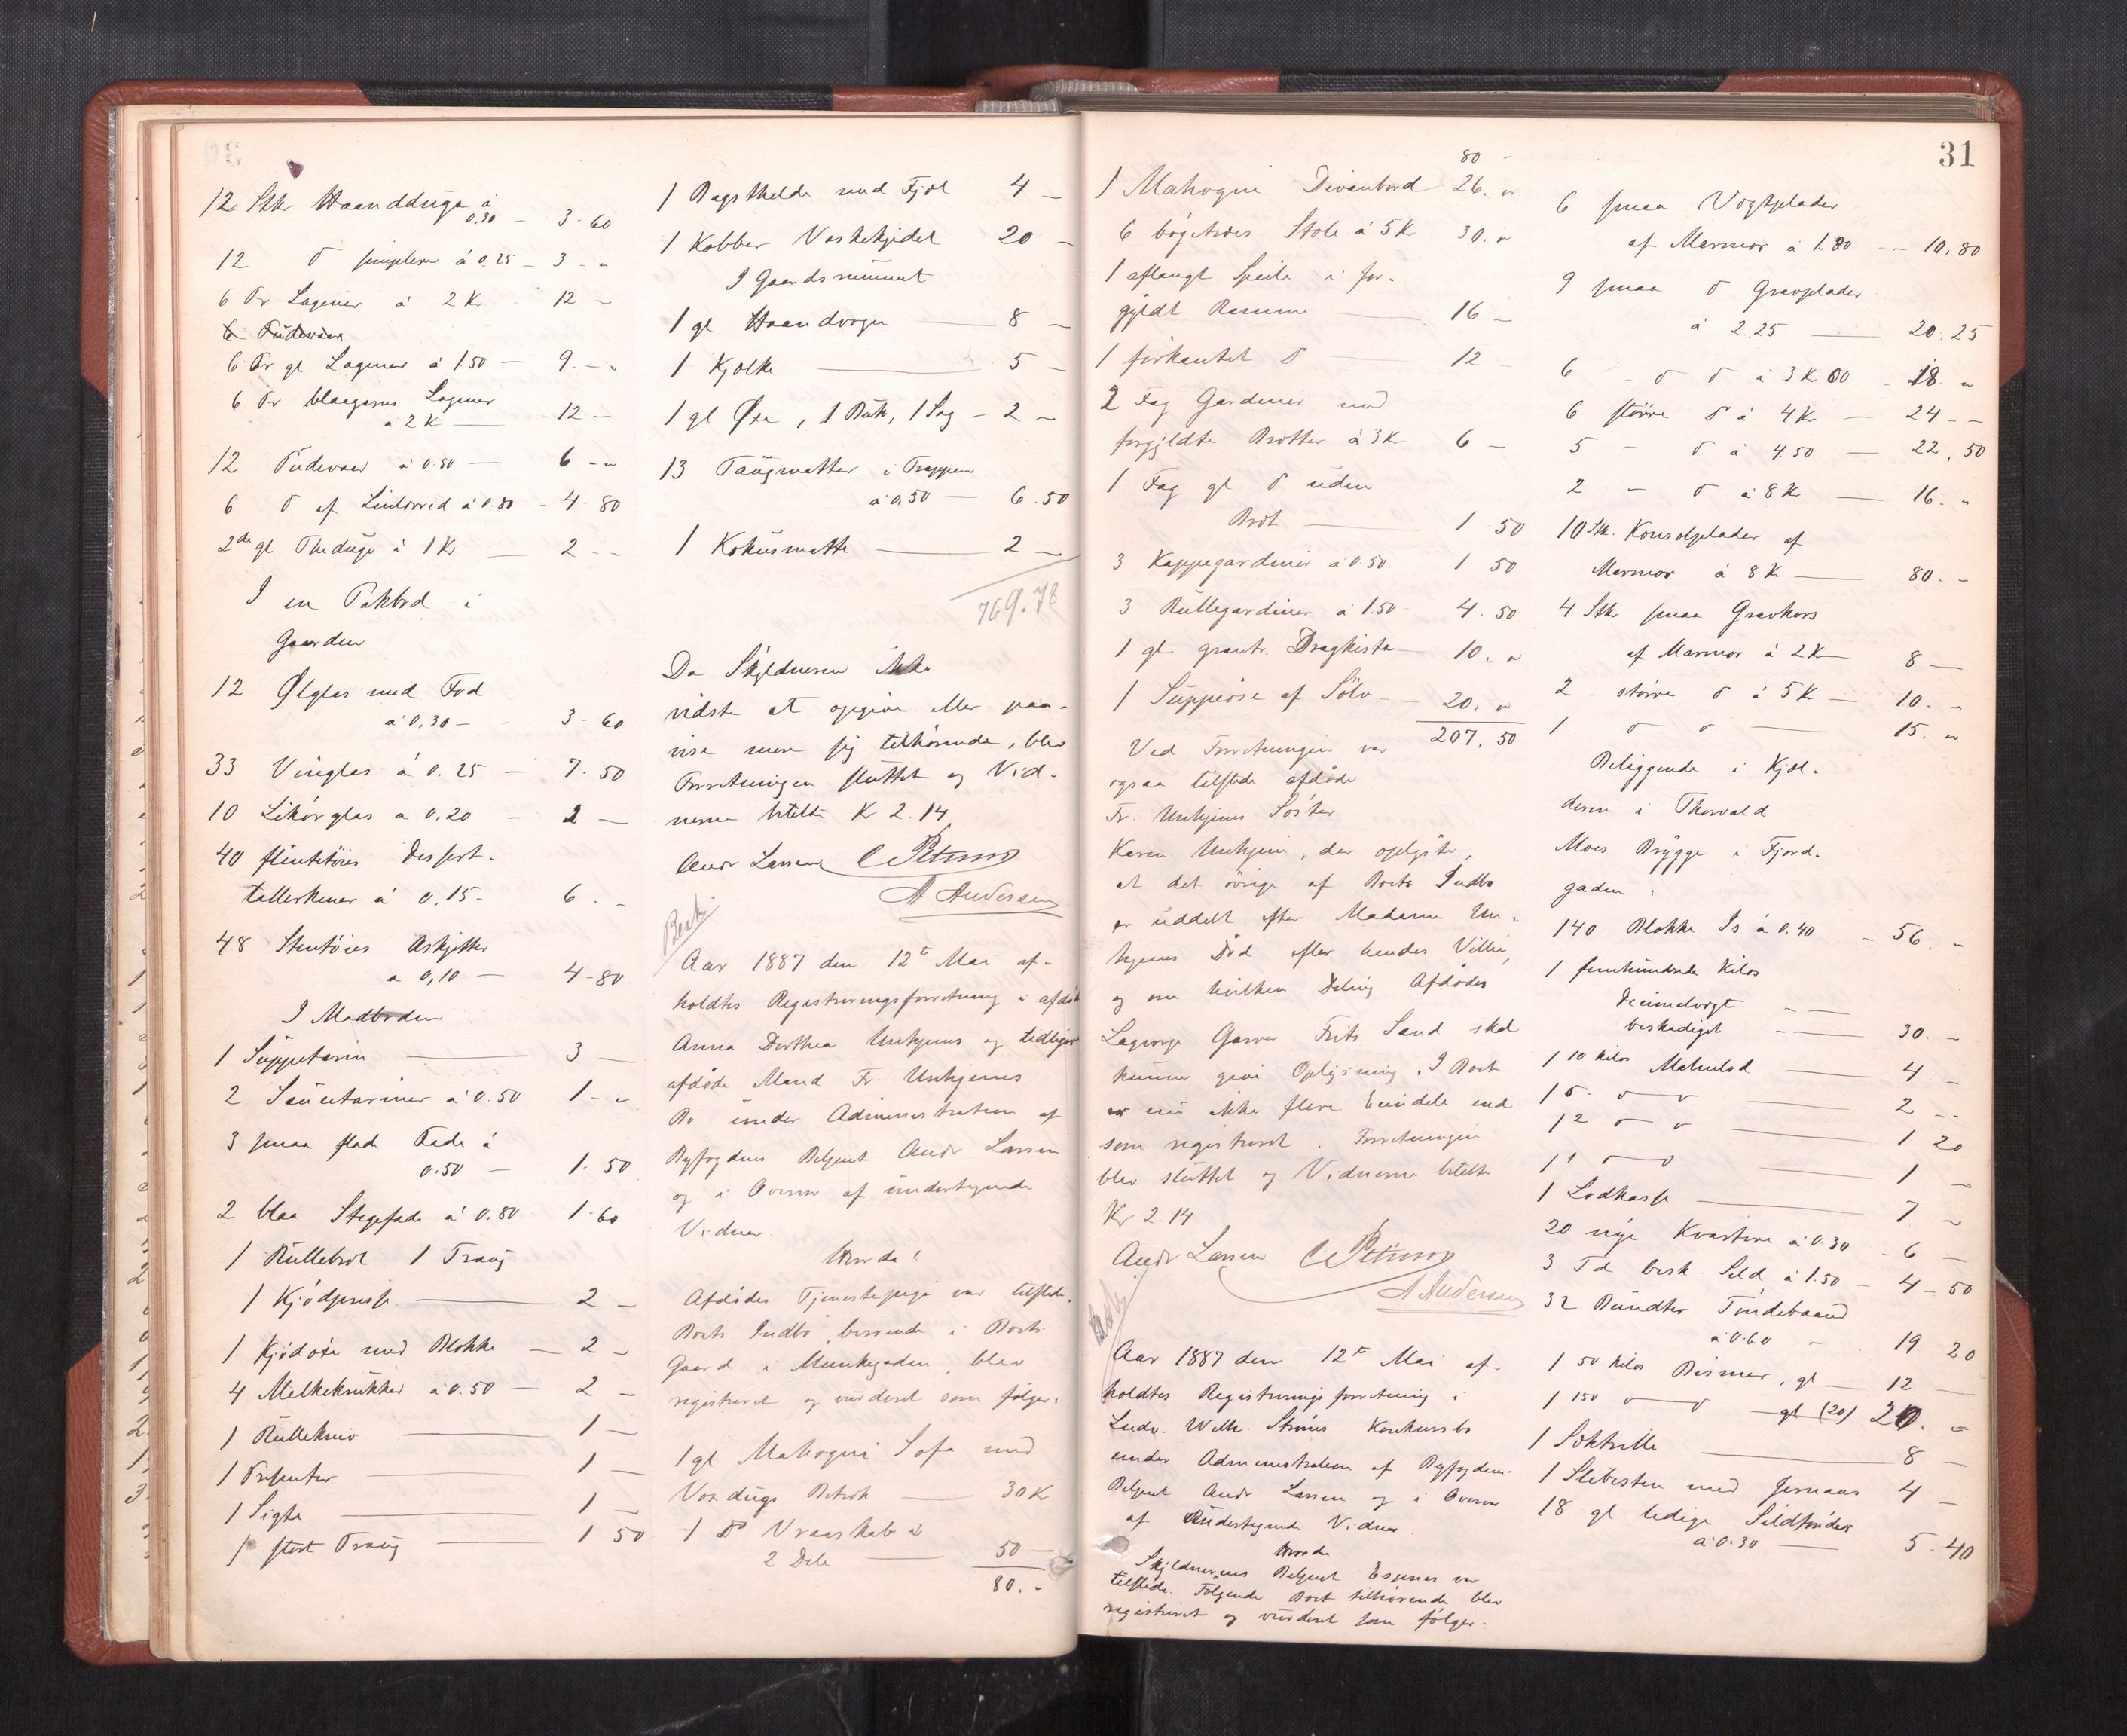 12 Stkr Haandduge á
0,30 — 3-60
12 do simplere á 0.25 — 3 - "
6 Pr Lagener á 2 Kr 12 —
6 Pudevaar
6 Pr gl Lagener á 1.50 — 9. - "
6 Pr blaagarns Lagener
á 2 K — 12 —
12 Pudevaar á 0.50 — 6 - "
6 do af Linlærred á 0.80 - 4-80
2 gl Theduge á 1 Kr — 2 - -
I en Pakbod i
Gaarden
12 Ølglas med Fod
á 0,30 — 3-60
33 Vinglas á 0.25 — 7.50
10 Likørglas a 0,20 - 2 —
40 flintetøies Dessert-
tallerkener á 0,15 - 6. -
48 Stentøies Askjetter
a 0,10 — 4-80
I Madboden
1 Suppeterrin — 3 —
2 Sauceterriner á 0.50 1 - "
3 smaa flade Fade á
0.50 — 1.50
2 blaa Stegefade á 0.80 1-60
1 Rullebræt 1 Traug
1 Kjødpresse — 2 —
1 Kjødøxe med Blokke — 2 -
4 Melkekrukker á 0.50 — 2 —
1 Rullekniv — 1 —
1 — 1 —
1 Sigte — 1 —
1 stort Traug — 1 50
1 Bagsthelde med Fjøl 4 —
1 Kobber Vaskekjedel 20 —
I Gaardsrummet
1 gl Haandvogn — 8 —
1 Kjælke — 5 —
1 gl Øxe, 1 , 1 Sag - 2 —
13 Taugmatter i Trappen
á 0,50 — 6.50
1 Kokusmatte — 2 —
769.78
Da Skyldneren ikke
vidste at opgive eller paa-
vise mere sig tilhørende, blev
Forretningen sluttet og Vid-
nerne betalt Kr 2.14
Andr Larssen C Petersen
A Andersen
Aar 1887 den 12te Mai af-
holdtes Registreringsforretning i afdøde
Anna Dorthea Unhjems og tidligere
afdøde Mand Fr. Unhjems
Bo under Administration af
Byfogdens Betjent Andr Larssen
og i Overvær af undertegnede
Vidner.
Hvorda!
Afdødes Tjenestepige var tilstede.
Boets Indbo, beroende i Boets
Gaard i Munkegaden, blev
registreret og vurderet som følger:
1 gl Mahogni Sofa med
Voxdugs Betræk — 30 K
1 do Vraaskab i
2 Dele — 50 —
80. -
31
80 -
1 Mahogni Divanbord 26. "
6 bøgetræes Stole á 5 K 30. "
1 aflangt Speile i for-
gyldt Ramme — 16 —
1 firkantet do — 12 -
2 Fag Gardiner med
forgyldte Bretter á 3 K 6 —
1 Fag gl do uden
Bret — 1 50
3 Kappegardiner á 0.50 1 50
3 Rullegardiner á 1.50 4.50
1 gl grantr. Dragkiste — 10. "
1 Suppeøse af Sølv — 20. "
207,50
Ved Forretningen var
ogsaa tilstede afdøde
Fr. Unhjems Søster
Karen Unhjem, der oplyste,
at det øvrige af Boets Indbo
er uddelt efter Madame Un-
hjems Død efter hendes Villie,
og om hvilken Deling Afdødes
Laugværge Garver Frits Sand skal
kunne give Oplysning. I Boet
er nu ikke flere Eiendele end
som registreret. Forretningen
blev sluttet og Vidnerne betalte
Kr 2.14
Andr Larssen C Petersen
A Andersen
Aar 1887 den 12te Mai af-
holdtes Registreringsforretning i
Ludv. Wilh. Strøms Konkursbo
under Administration af Byfogdens
Betjent Andr Larssen og i Overvær
af Undertegnede Vidner.
Hvorda
Skyldnerens Betjent Espenes var
tilstede. Følgende Boet tilhørende blev
registreret og vurderet som følger:
6 smaa Vægtplader
af Marmor á 1.80 - - 10,80
9 smaa do Gravplader
á 2.25 — 20.25
6 - do do á 3 K 00 - 18. "
6 større do á 4 K — 24 - -
5 - do á 4.50 — 22,50
2 - do á 8 K — 16. "
10 Stk. Konsolplader af
Marmor á 8 K — 80. -
4 Stkr smaa Gravkors
af Marmor á 2 K — 8 —
2 - større do á 5 K — 10. -
1 do do — 15. "
Beliggende i Kjæl-
deren i Thorvald
Moes Brygge i Fjord-
gaden:
140 Blokke Is á 0.40 - 56. -
1 femhundrede Kilos
Decimalvægt
beskadiget — 30. -
1 10 kilos Metallod — 4 -
1 5 - do do — 2 - -
1 2 do do — 1 20
1 1 do do — 1 —
1 Lodkasse — 7 ~
20 nye Kvartere á 0.30 - 6 —
3 Td besk. Sild á 1.50 — 4-50
32 Bundter Tøndebaand
á 0.60 - 19. 20
1 50 kilos Bismer, gl — 12 —
1 150 do do — gl (20) 20. -
1 — 8 —
1 Slibesten med 4 —
18 gl ledige Sildtønder
á 0.30 — 5-40